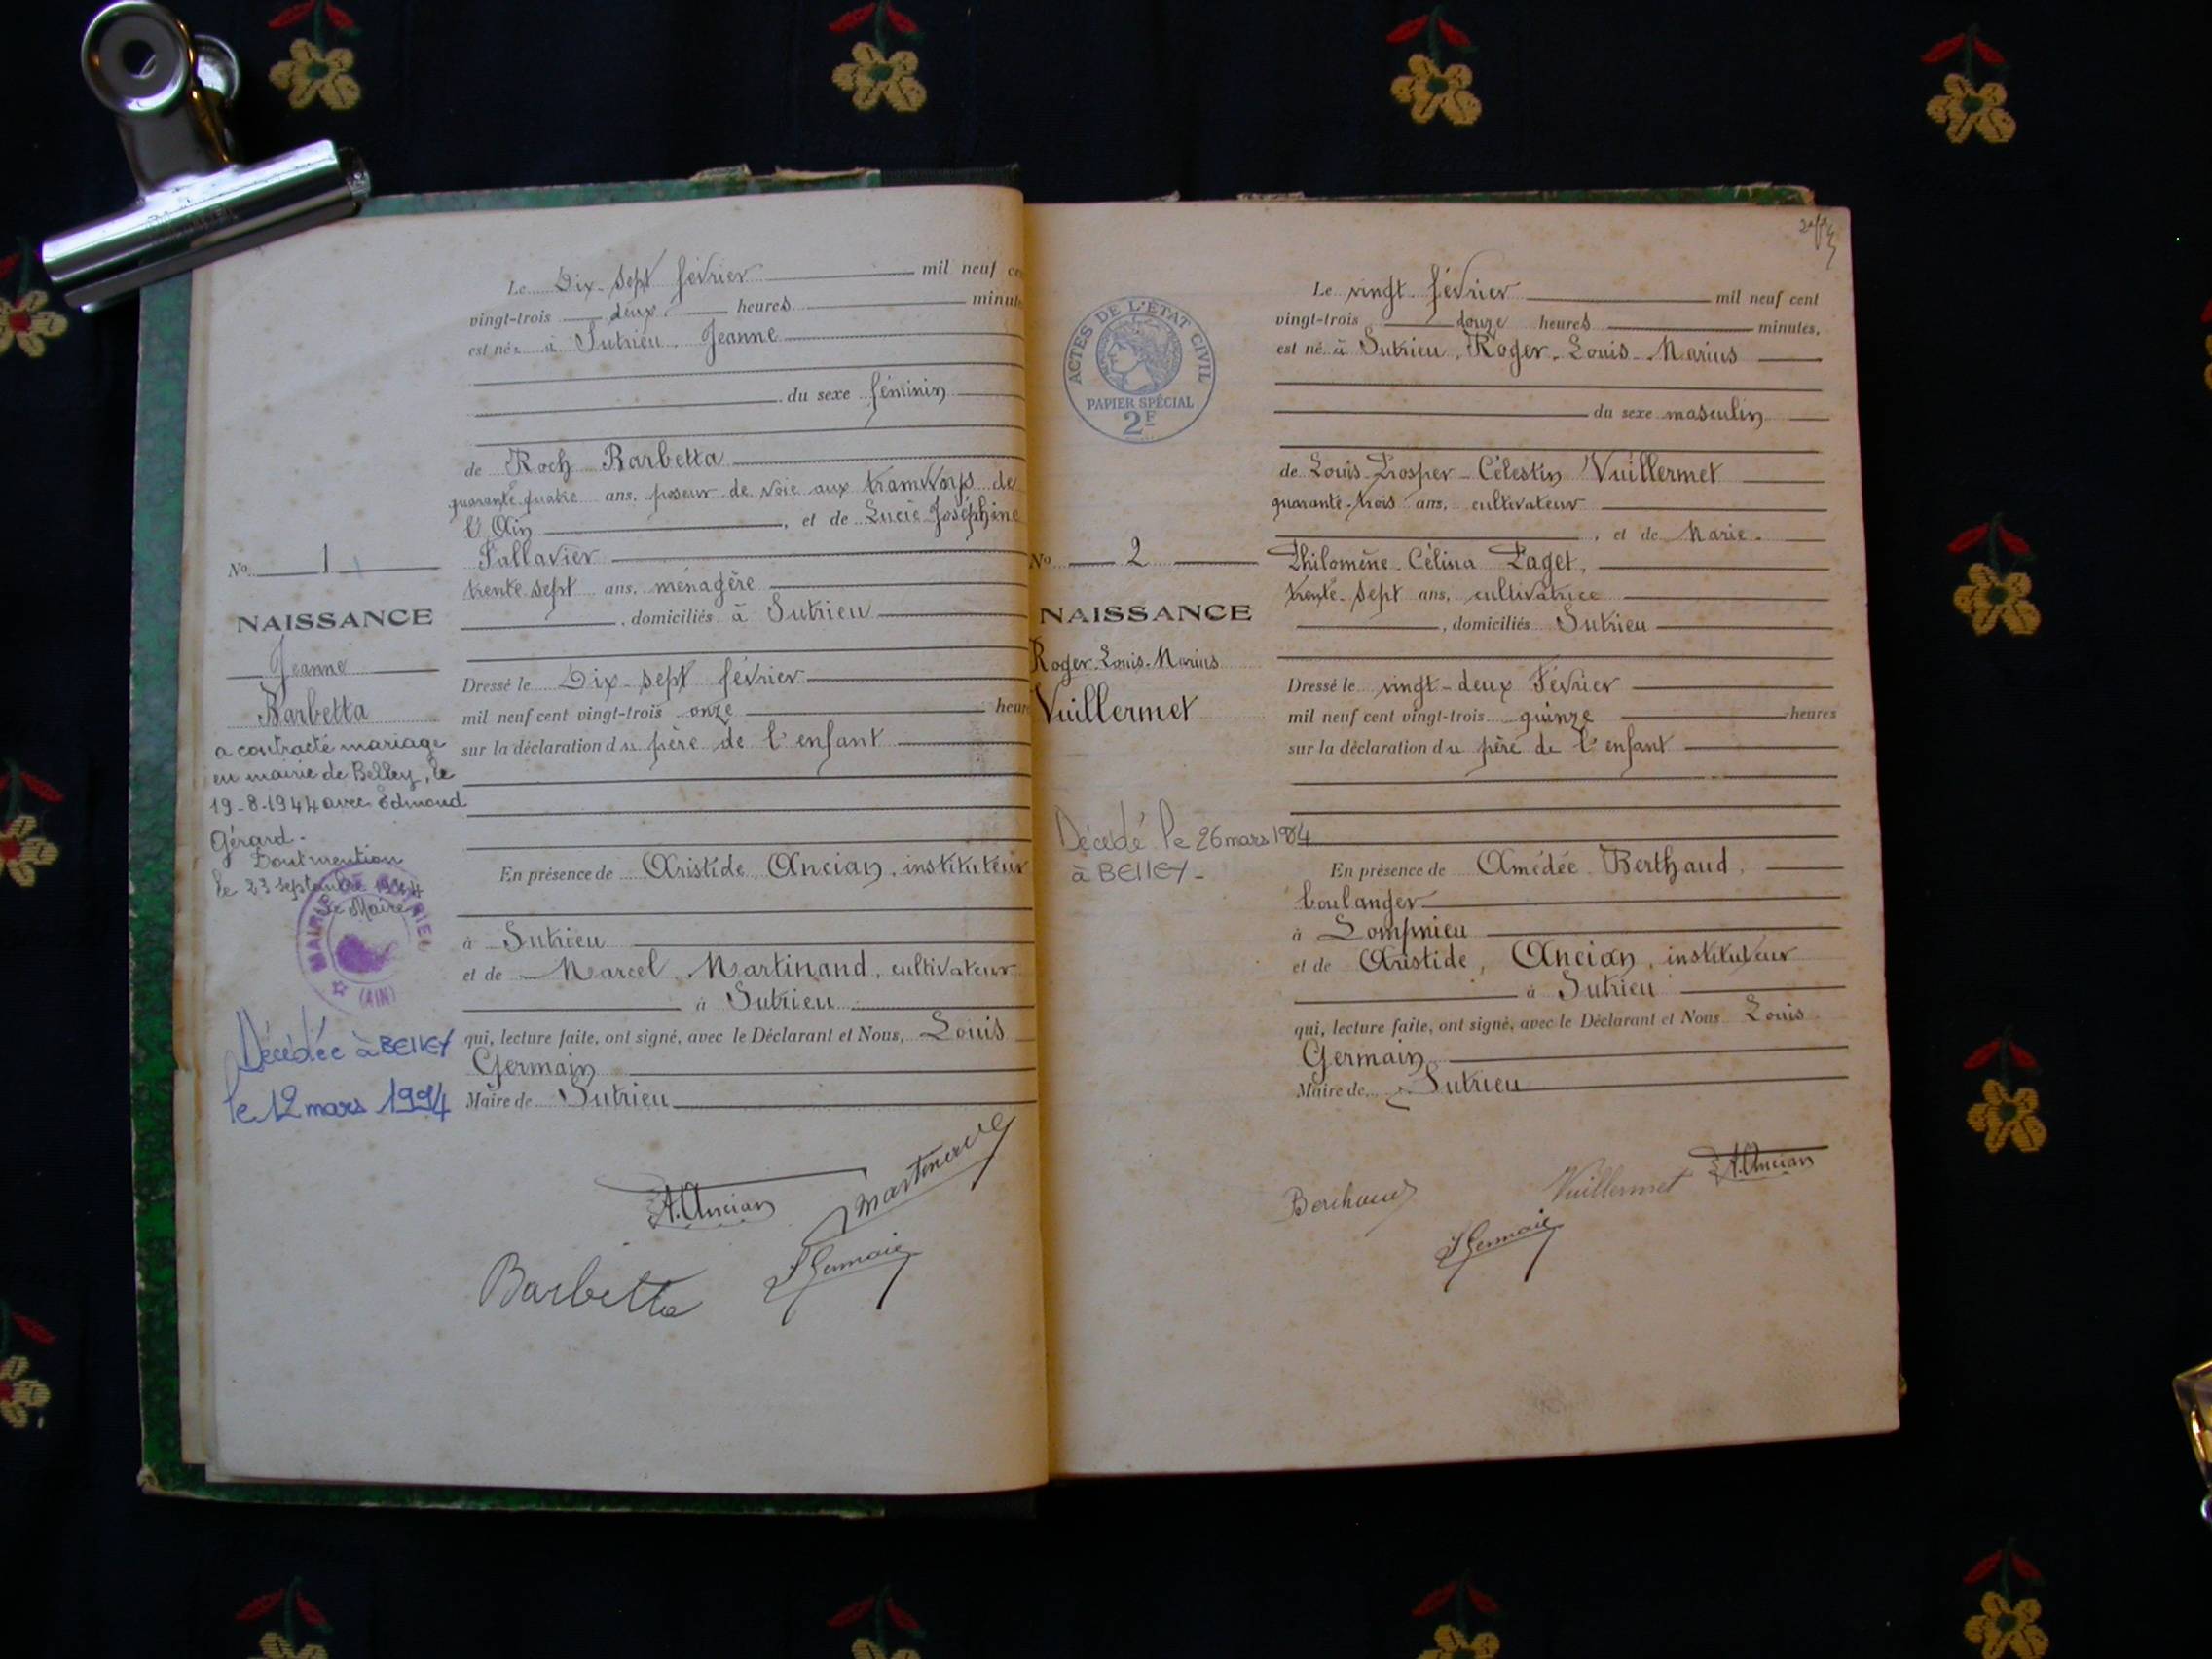 Le Dix-sept février mil neuf
vingt-trois deux heures
est née à Sutrieu, Jeanne
du sexe féminin
de Roch Barbetta
quarante quatre ans, poseur de voie aux tramways de
l'Ain, et de Lucie Joséphine
Tallavier
trente sept ans, ménagère
, domiciliés à Sutrieu
Dressé le Dix-sept février
mil neuf cent vingt-trois onze
sur la déclaration du père de l'enfant
En présence de Aristide Ancian, instituteur
à Sutrieu
et de Marcel Martinand, cultivateur
à Sutrieu
qui, lecture faite, ont signé, avec le Déclarant et Nous, Louis
Germain
Maire de Sutrieu
A. Ancian
Martinand
Barbetta
L Germain
No 1
NAISSANCE
Jeanne
Barbetta
a contracté mariage
en mairie de Belley, le
19-8-1944 avec Edmond
Gérard.
Dont mention
le 23 septembre 1944
Le Maire
MAIRIE SUTRIEU
(AIN)
Décédée à BELLEY
le 12 mars 1994
Le vingt février mil neuf cent
vingt-trois douze heures minutes,
est né à Sutrieu, Roger-Louis-Marius
du sexe masculin
de Louis-Prosper-Célestin Vuillermet
quarante-trois ans, cultivateur
, et de Marie-
Philomène-Célina Paget,
trente-sept ans, cultivatrice
, domiciliés Sutrieu
Dressé le vingt-deux Février
mil neuf cent vingt-trois quinze heures
sur la déclaration du père de l'enfant
En présence de Amédée Berthaud,
boulanger
à Lompnieu
et de Aristide, Ancian, instituteur
à Sutrieu
qui, lecture faite, ont signé, avec le Déclarant et Nous Louis
Germain
Maire de Sutrieu
Berthaud
Vuillermet
A. Ancian
L Germain
ACTES DE L'ÉTAT CIVIL
PAPIER SPÉCIAL
2F
No 2
NAISSANCE
Roger-Louis-Marius
Vuillermet
Décédé le 26 mars
à BELLEY-